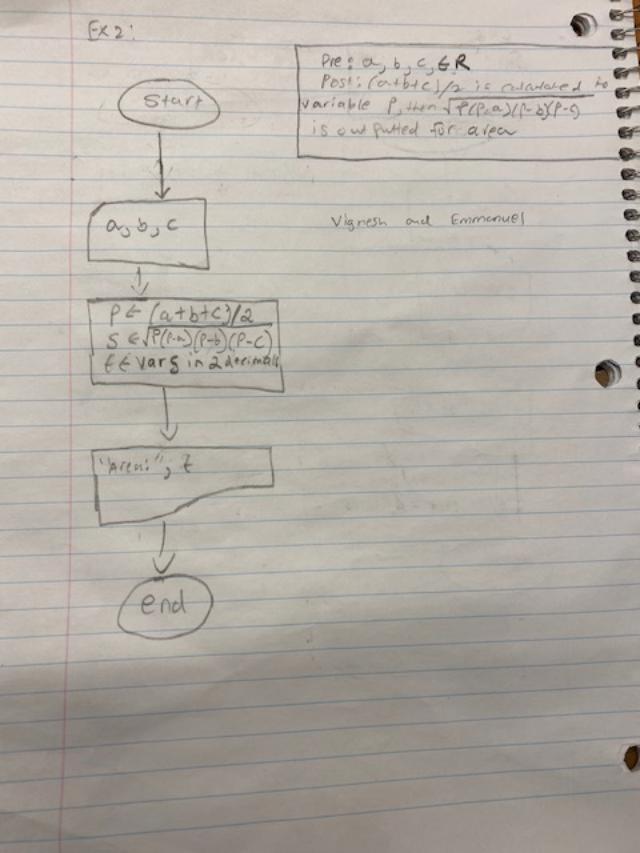 Ex 2:
Pre: a, b, c, ∈ R
Post: (a+b+c)/2 is calculated to
variable P, then √P(P-a)(P-b)(P-c)
is outputted for area
Start
a, b, c
Vignesh and Emmanuel
P ← (a+b+c)/2
S ← √P(P-a)(P-b)(P-c)
t ← var S in 2 decimals
"Area:", t
end